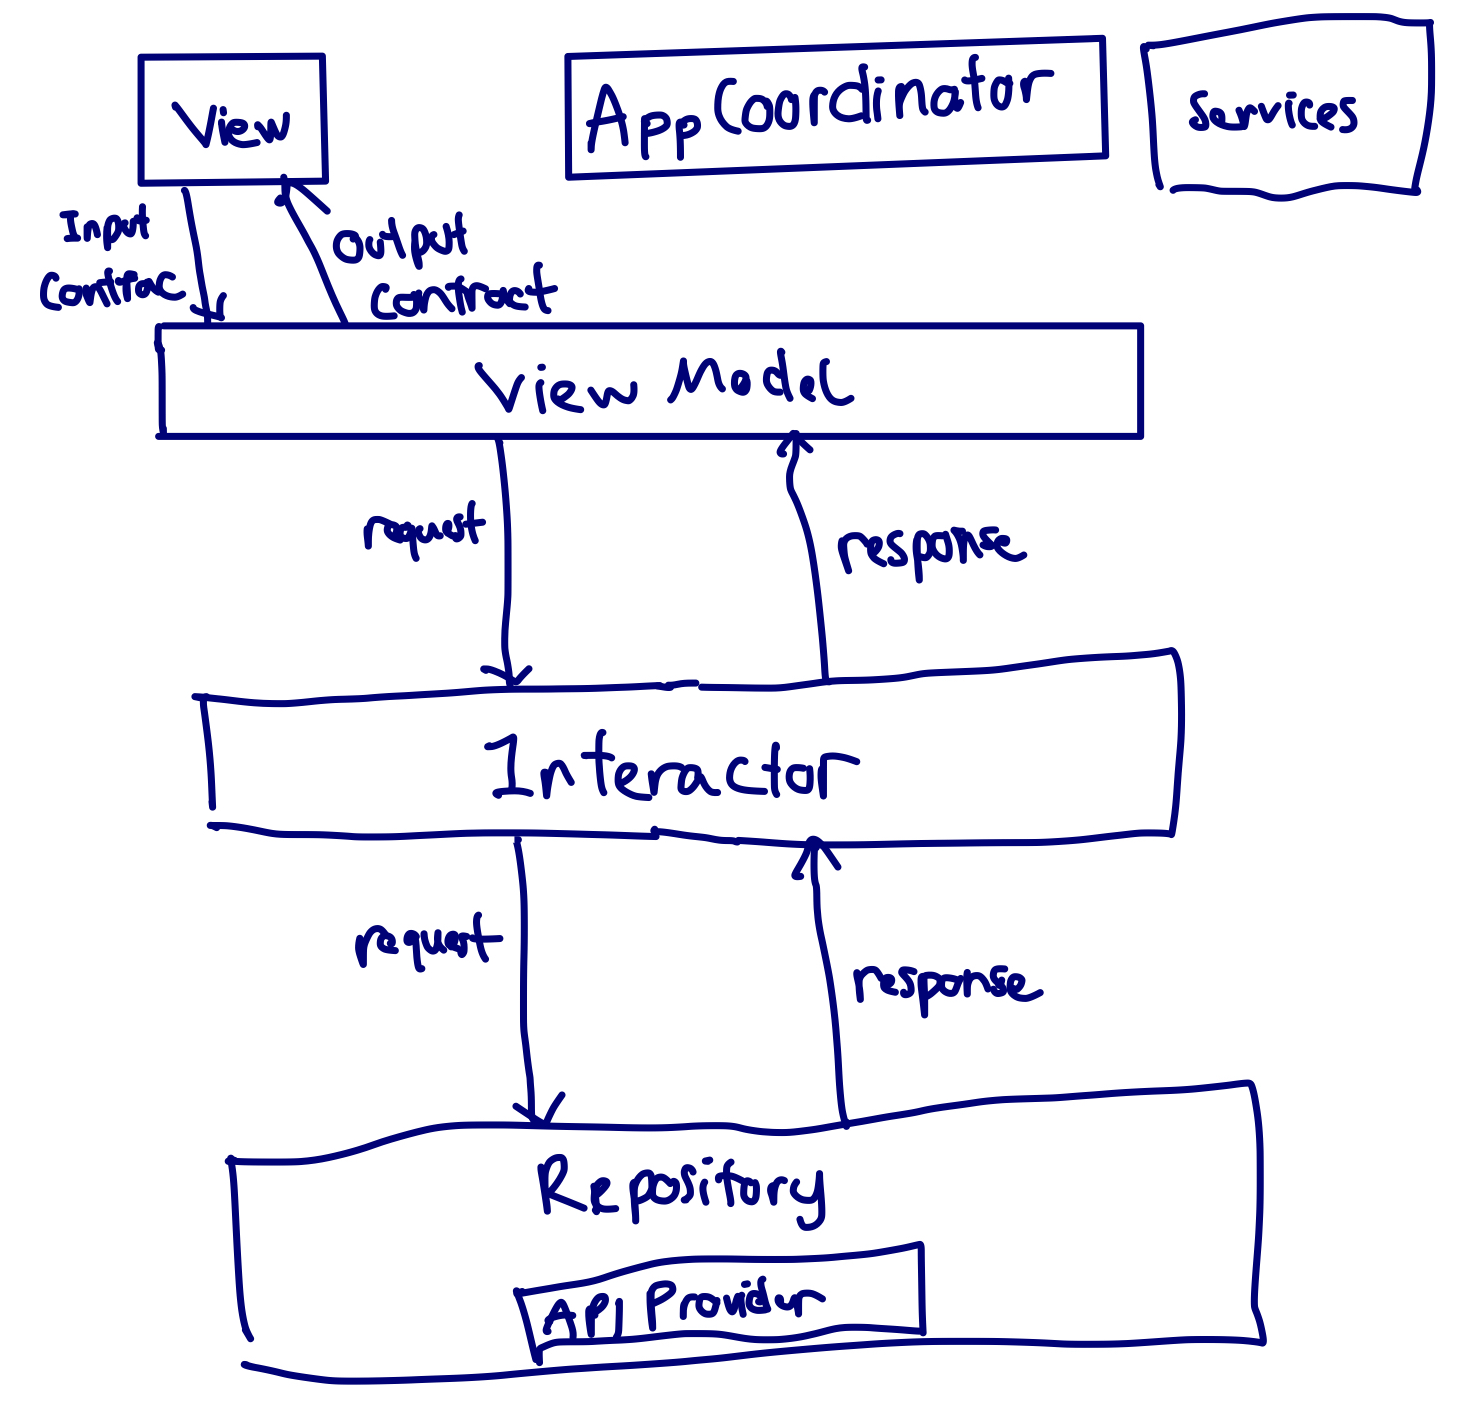 View
App Coordinator
Services
Input
Contrac
Output
Contract
View Model
request
response
Interactor
request
response
Repository
API Provider